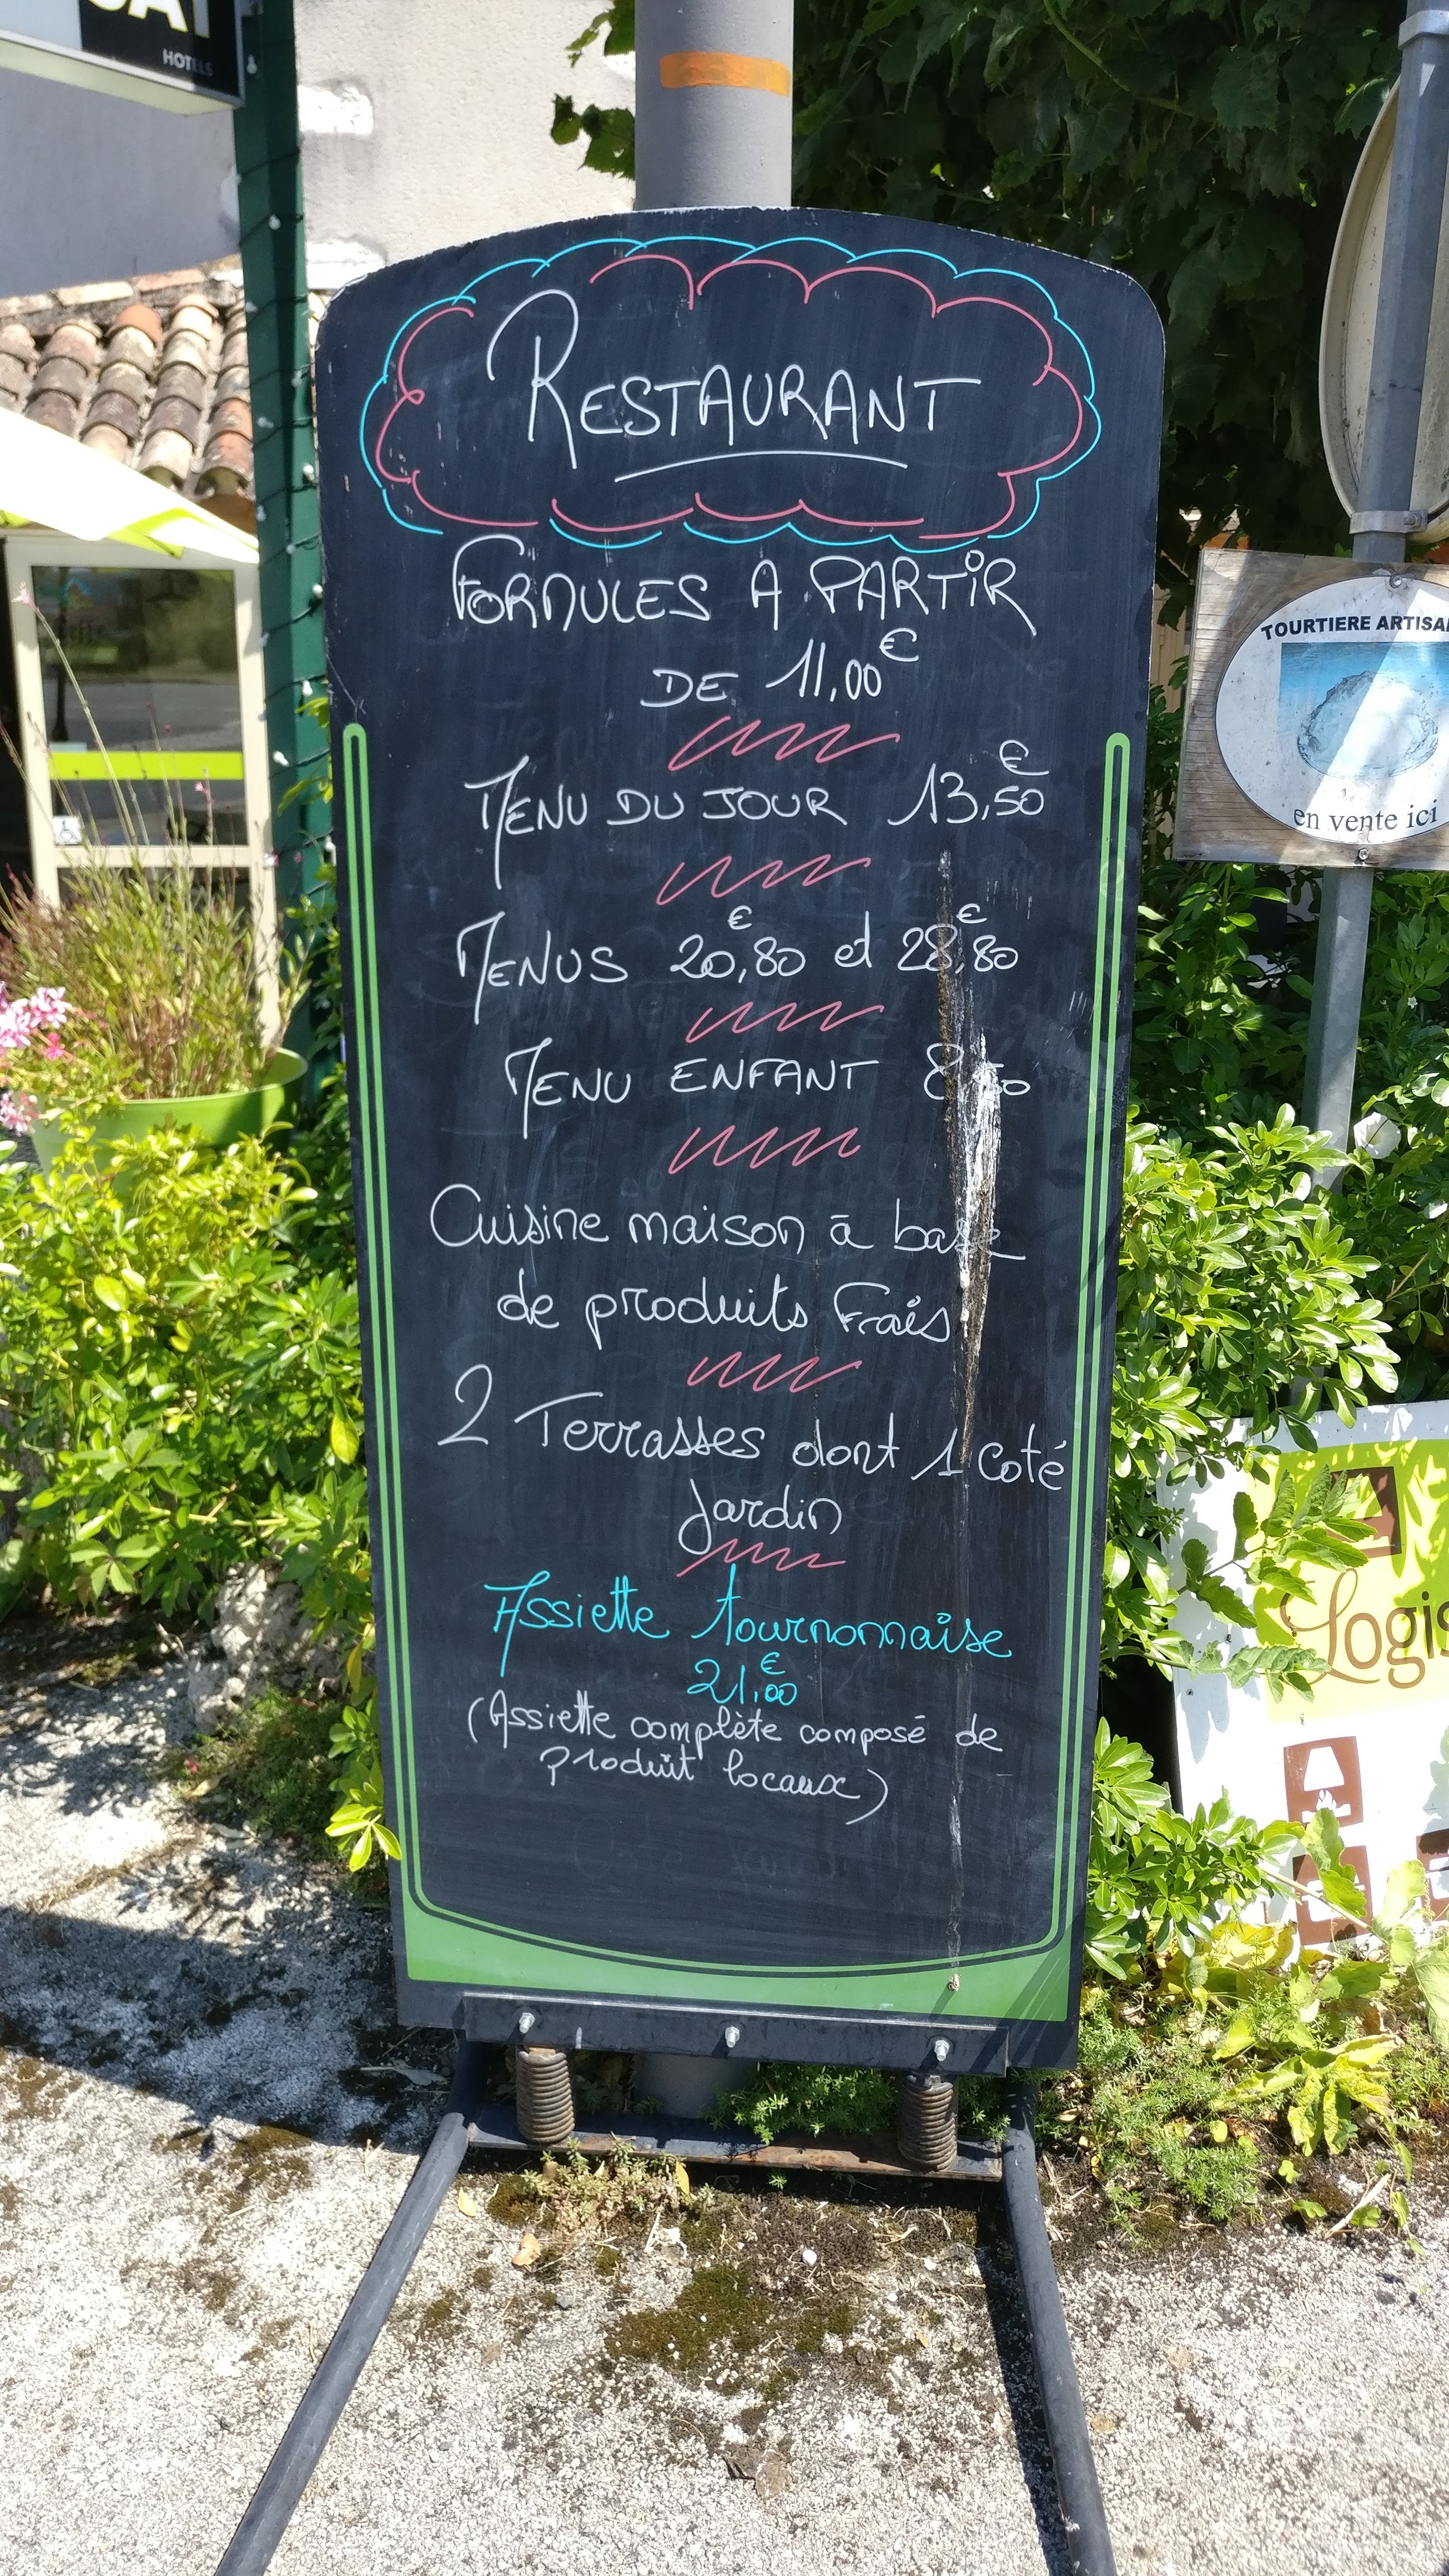 HOTELS
RESTAURANT
FORMULES A PARTIR
DE 11,00€
MENU DU JOUR 13,50€
MENUS 20,80€ et 28,80€
MENU ENFANT
Cuisine maison à base
de produits Frais
2 Terrasses dont 1 coté
Jardin
Assiette tournonnaise
21,00€
(Assiette complète composé de
produit locaux)
TOURTIERE
en vente ici